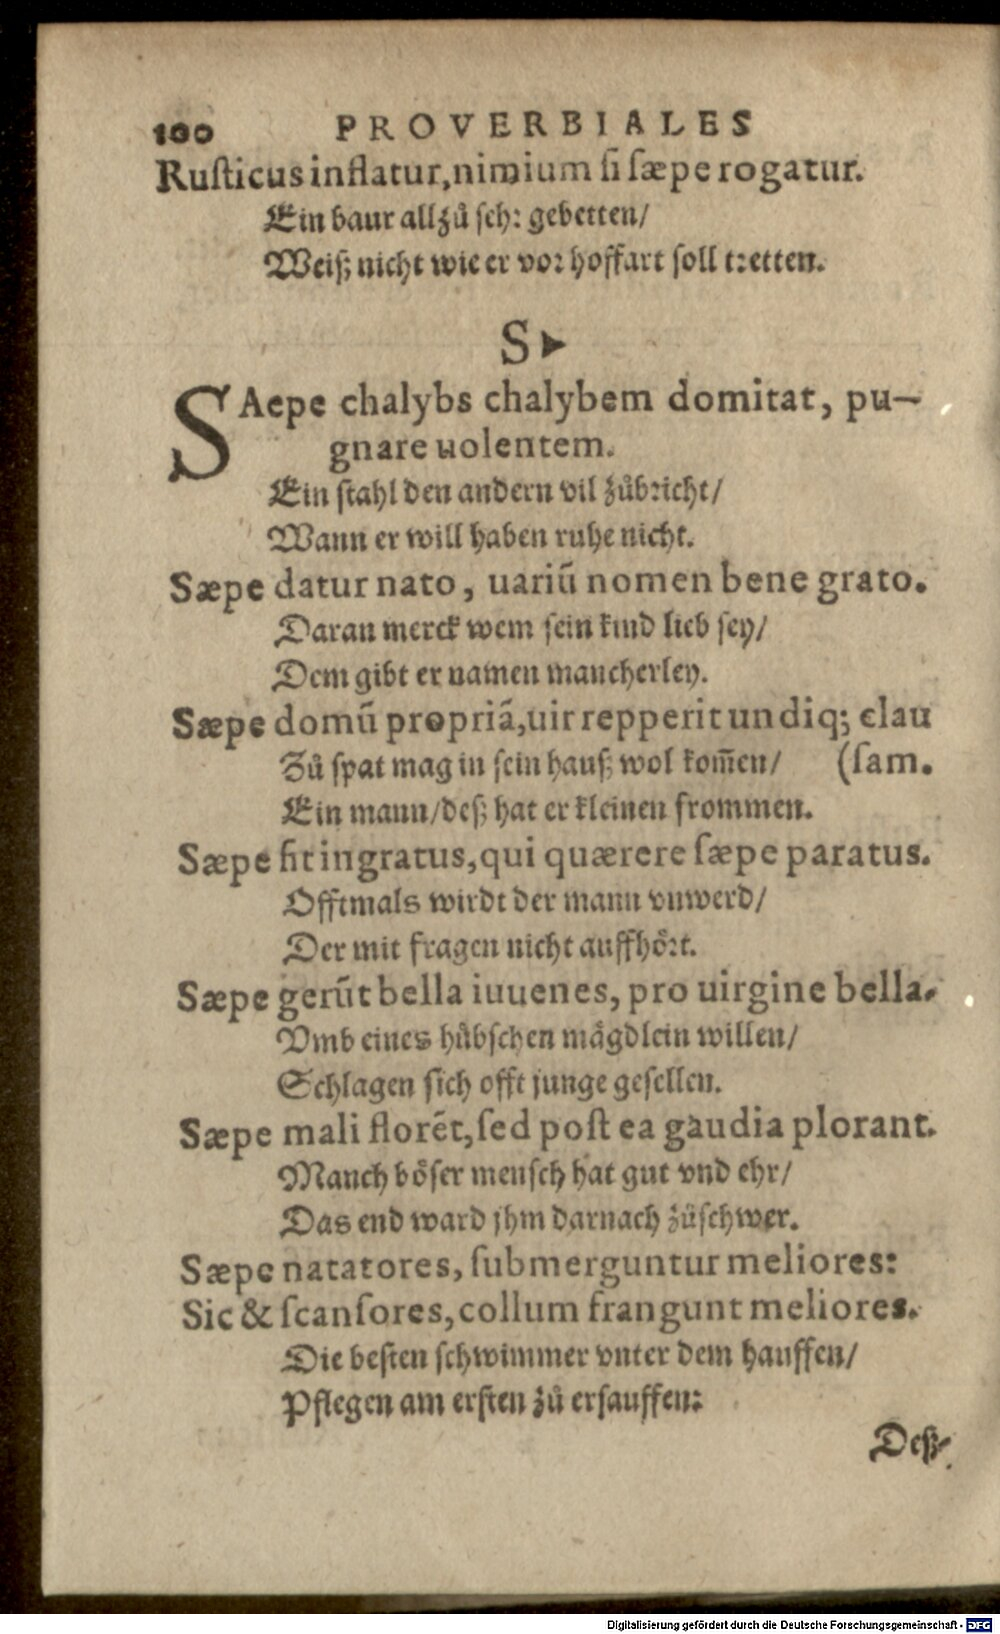 100 PROVERBIALES
Ruſticus inflatur, nimium ſi ſæpe rogatur.
Ein baur allzů ſehr gebetten/
Weiß nicht wie er vor hoffart ſoll tretten.
S
SAepe chalybs chalybem domitat, pu-
gnare uolentem.
Ein ſtahl den andern vil zůbricht/
Wann er will haben ruhe nicht.
Sæpe datur nato, uariū nomen bene grato.
Daran merck wem ſein kind lieb ſey/
Dem gibt er namen mancherley.
Sæpe domū propriā, uir repperit undiq; clau
Zů ſpat mag in ſein hauß wol kom̄en/ (ſam.
Ein mann/deß hat er kleinen frommen.
Sæpe fit ingratus, qui quærere ſæpe paratus.
Offtmals wirdt der mann vnwerd/
Der mit fragen nicht auffhoͤrt.
Sæpe gerūt bella iuuenes, pro uirgine bella.
Vmb eines huͤbſchen maͤgdlein willen/
Schlagen ſich offt junge geſellen.
Sæpe mali florēt, ſed poſt ea gaudia plorant.
Manch boͤſer menſch hat gut vnd ehr/
Das end ward jhm darnach zůſchwer.
Sæpe natatores, ſubmerguntur meliores:
Sic & ſcanſores, collum frangunt meliores.
Die beſten ſchwimmer vnter dem hauffen/
Pflegen am erſten zů erſauffen:
Deß-
Digitalisierung gefördert durch die Deutsche Forschungsgemeinschaft - DFG